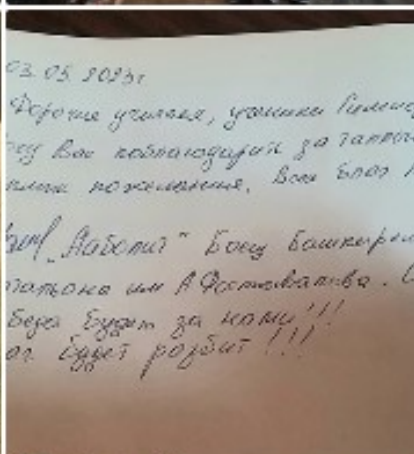 03.05.2023г
Дорогие учителя, ученики Гимназ
очу Вас поблагодарить за тёплы
плые пожелания. Всем благ
"Наполит" Боец Башкирск
батальона им А.Доставалова.
беда будет за нами!!!
раг будет разбит!!!